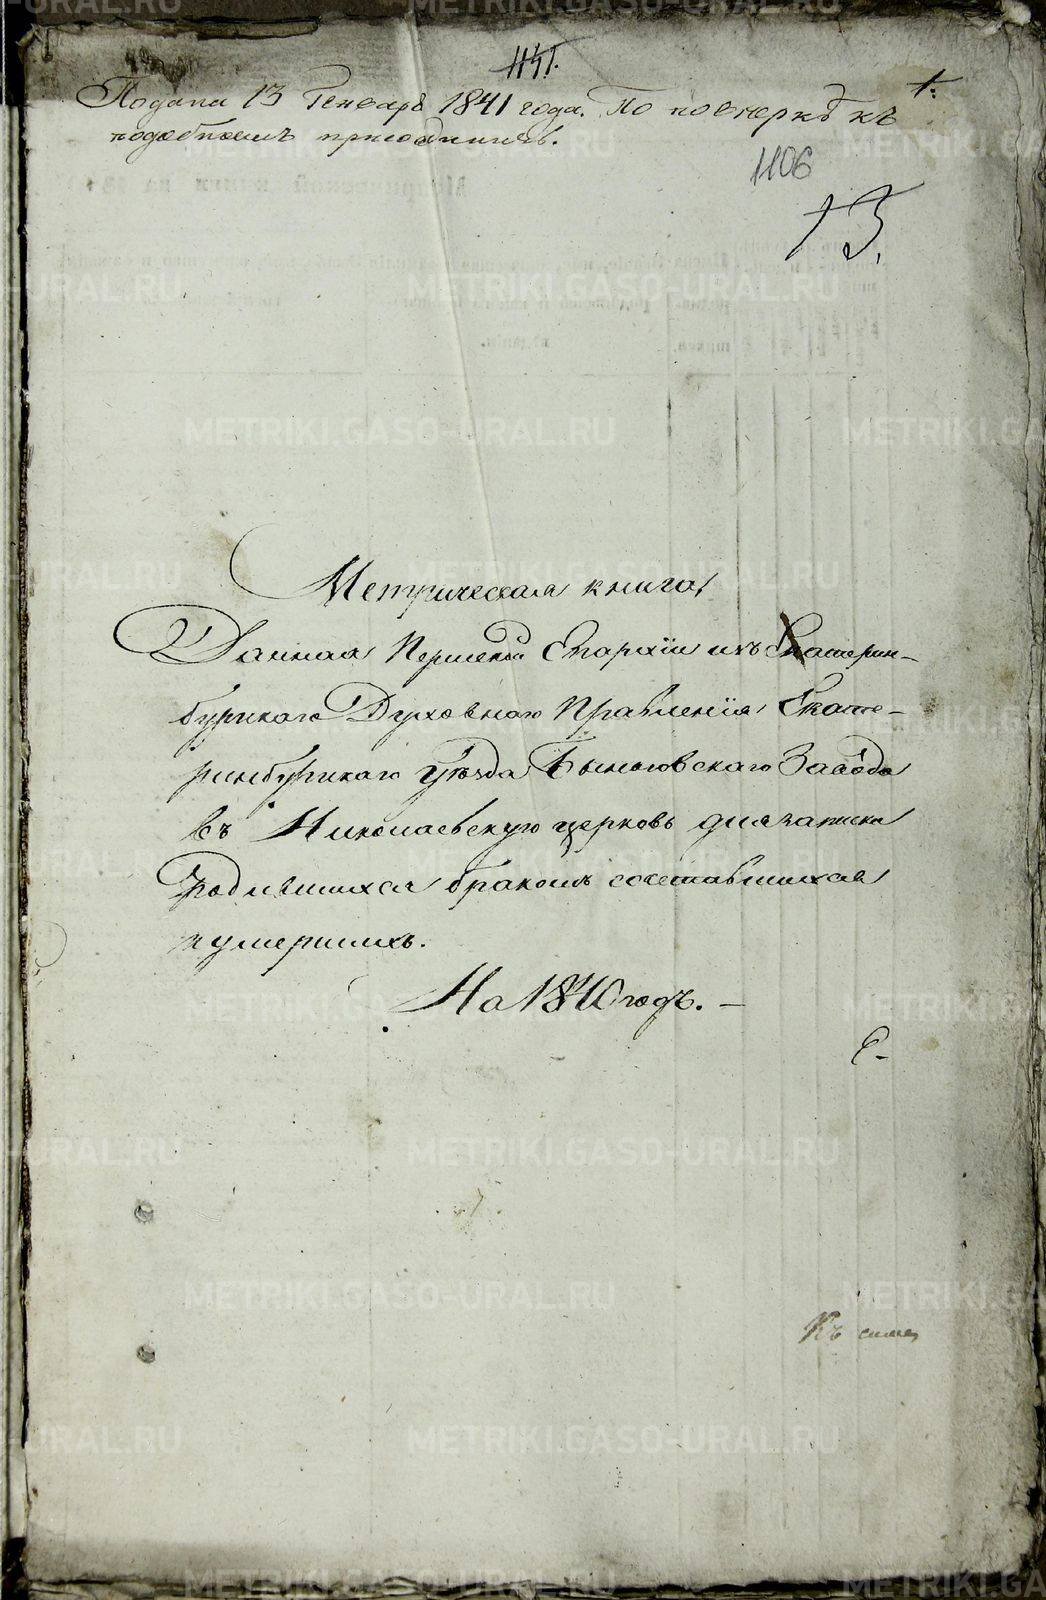 1151.
1.
Подана 13 Генваря 1841 года. По поверкѣ къ
подобнымъ приобщить.
1106
13.
Метрическая книга,
Данная Пермской Епархіи изъ Екатерин-
бургскаго Духовнаго Правленія Екате-
ринбургскаго уѣзда Быньговскаго Завода
въ Николаевскую церковь для записки
родившихся бракомъ сочетавшихся
и умершихъ.
На 1840 годъ. —
Къ симъ
METRIKI.GASO-URAL.RU